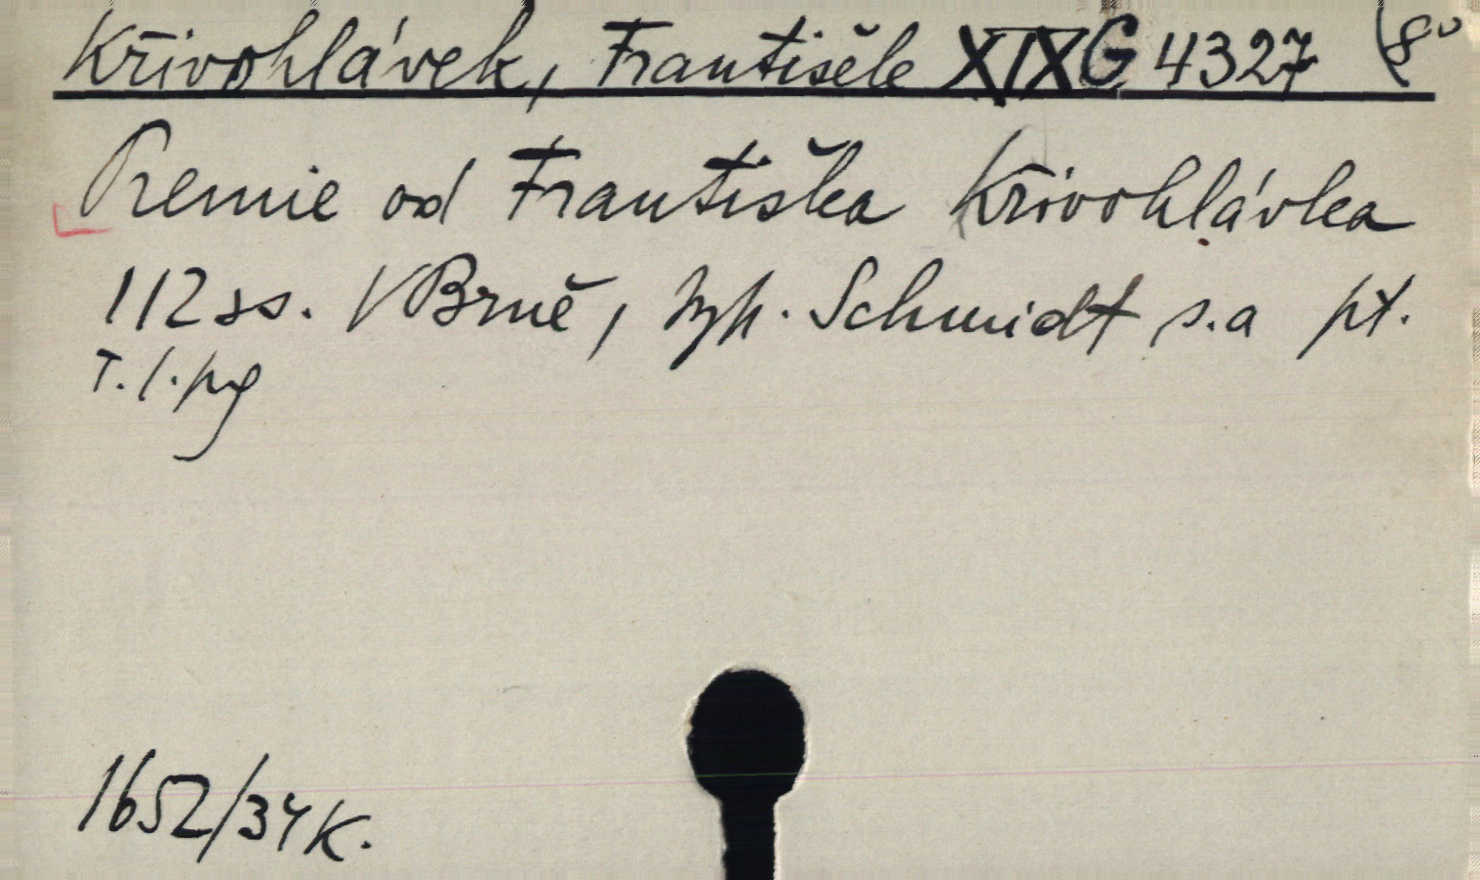 Křivohlávek, František XIX G 4327 (8°
Premie od Františka Křivohlávka
112 ss. V Brně, typ. Schmidt s.a pt.
T. l. pg
1652/34 K.